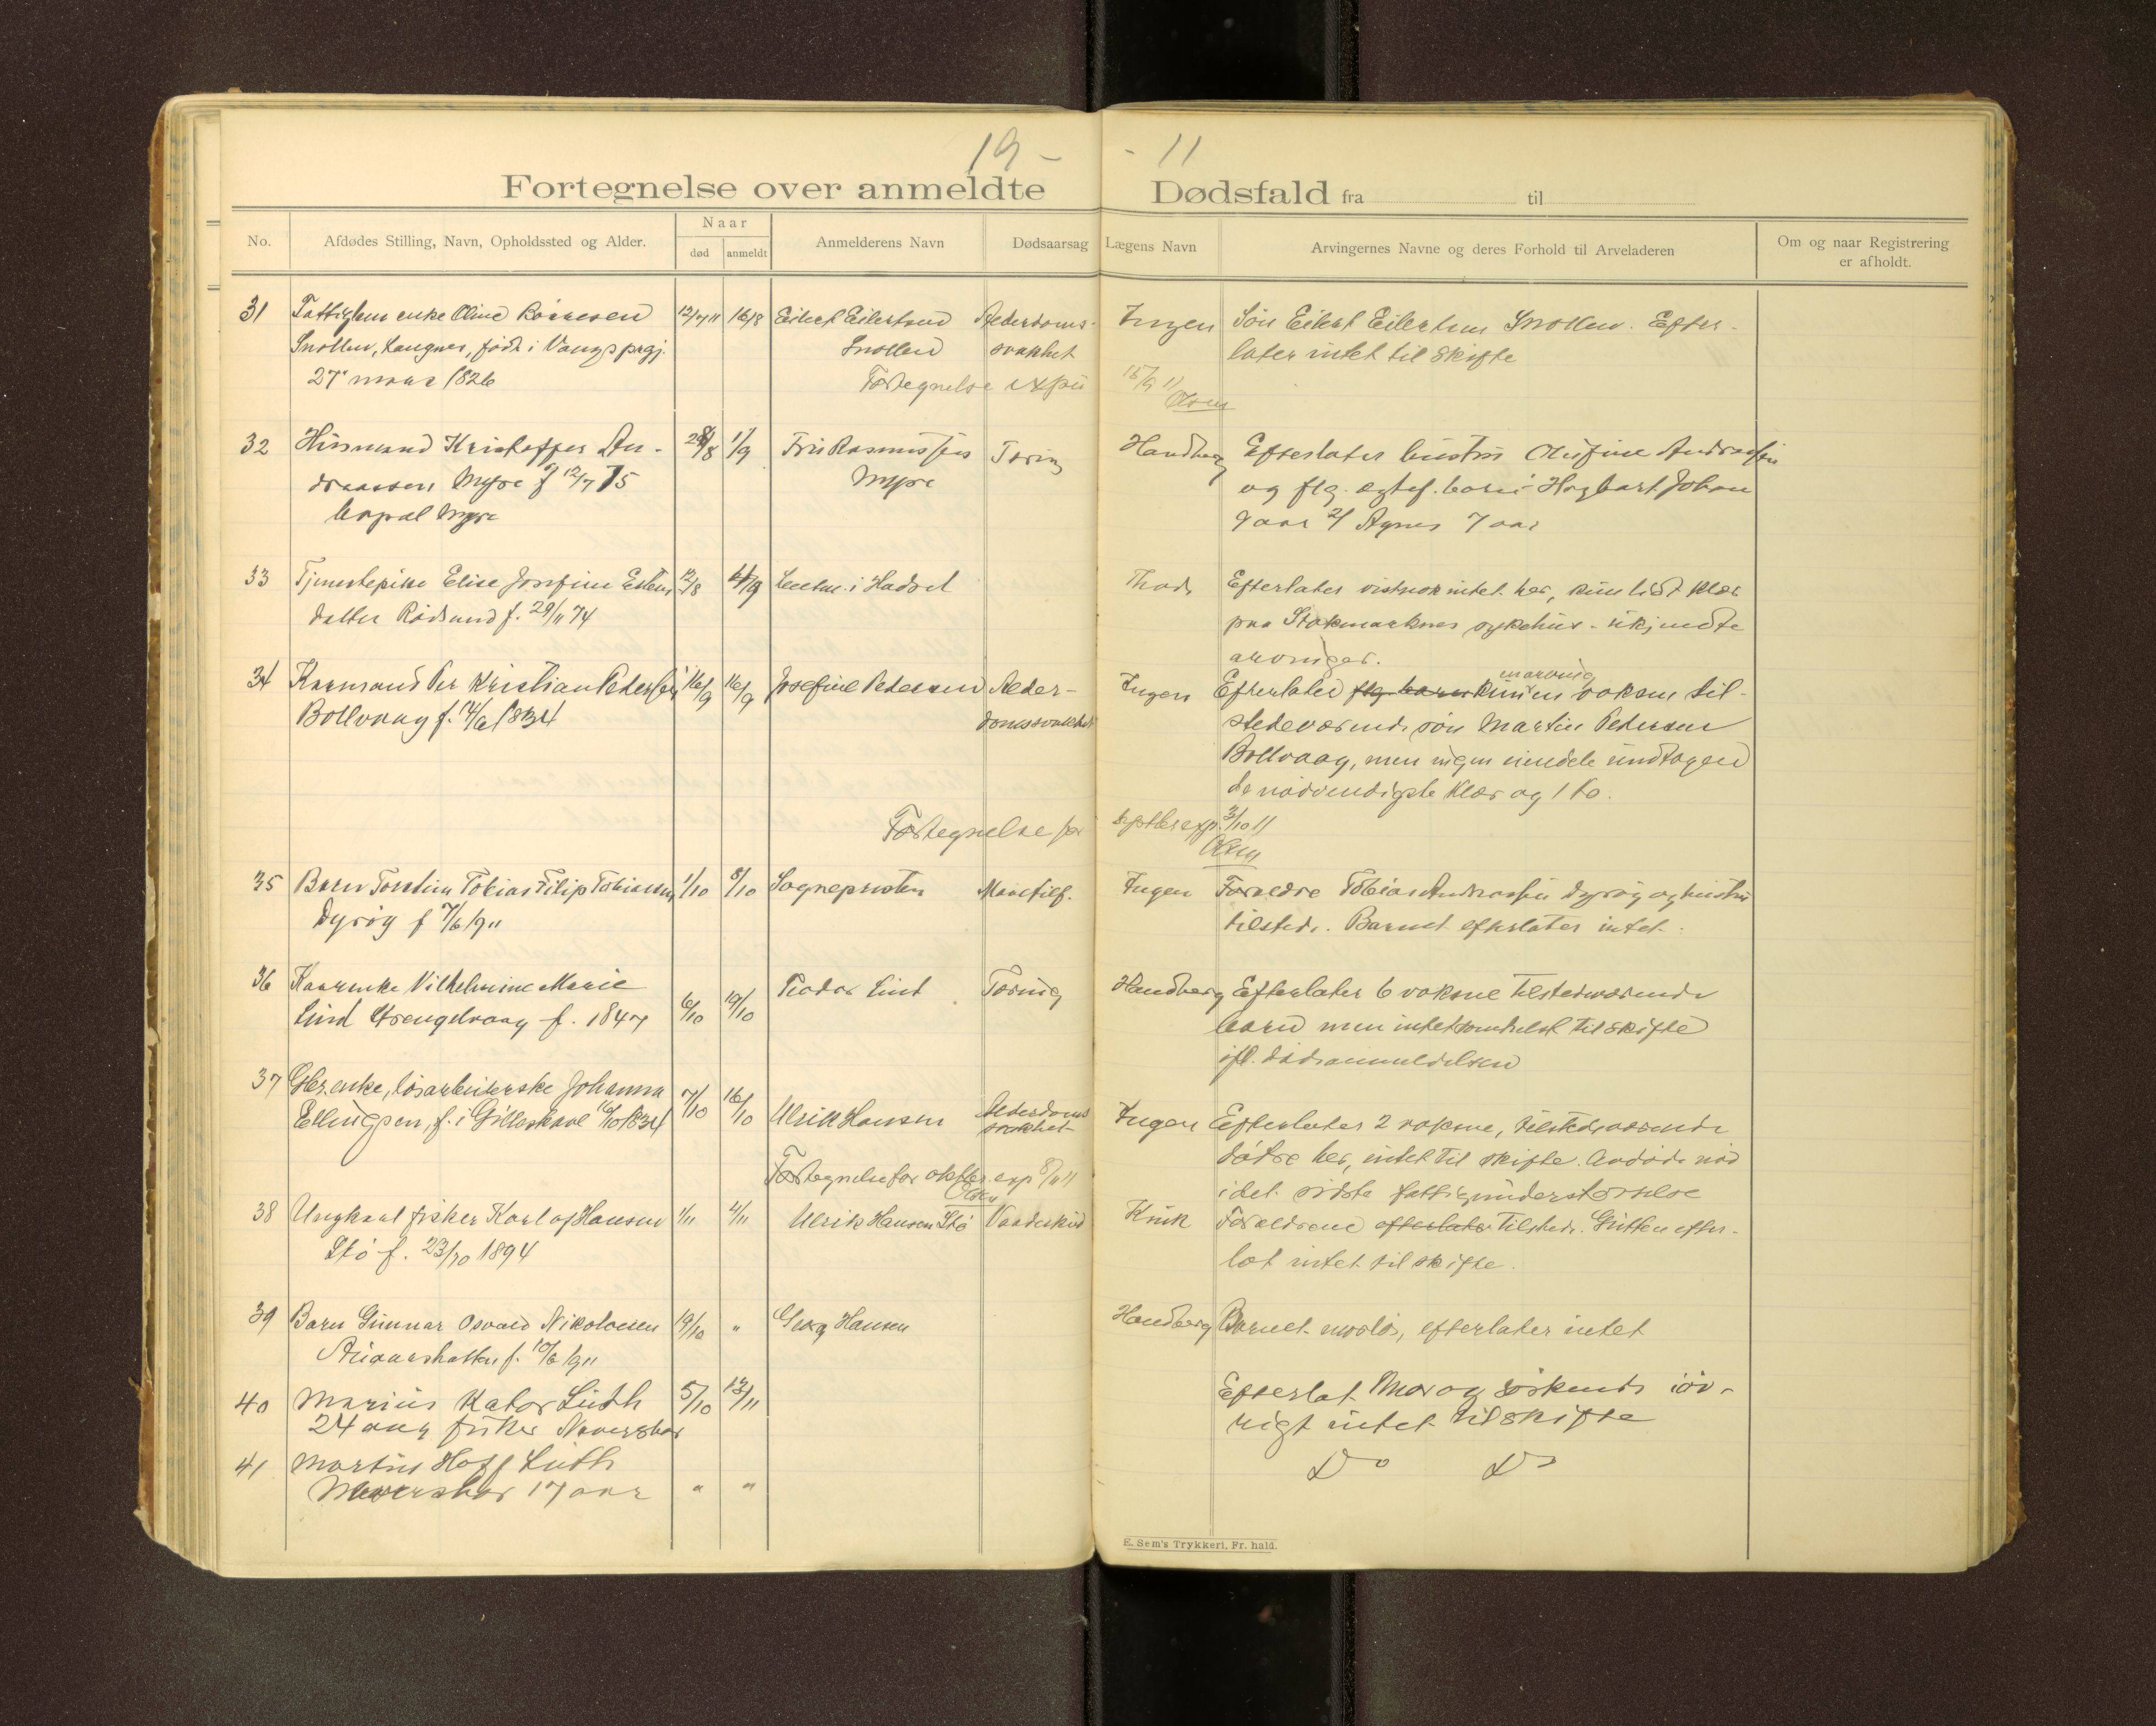 19 - - 11
Fortegnelse over anmeldte Dødsfald fra til
No. Afdødes Stilling, Navn, Opholdssted og Alder. Naar død anmeldt Anmelderens Navn Dødsaarsag Lægens Navn Arvingernes Navne og deres Forhold til Arveladeren Om og naar Registrering er afholdt.
31 enke Oline 12/7 11 16/8 Eilert Eilertsen Alderdoms- Ingen Søn Eilert Eilertsen Snollen. Efter-
Snollen, Langnes, født i Vangs prgj. Snollen svakhet later intet til skifte
27 mars 1826 Fortegnelse exp 15/9 11
Olsen
32 Husmand Kristoffer An- 28/8 1/9 Fru Rasmussen Tæring Handberg Efterlater hustru Olufine Andreassen
dreassen Myre f 12/7 75 Myre og flg. egtef. barn: Hagbart Johan
Myre 9 aar 2/ Agnes 7 aar
33 Tjenestepike Elise Josefine Esten 12/8 4/9 Lensm. i Hadsel Efterlater vistnok intet her, kun lidt klær
datter Rødsund f. 29/11 74 paa Stokmarknes sykehus - ukjendte
arvinger.
34 Kaarmand Per Kristian Pedersen 16/9 16/9 Josefine Pedersen Alder- Ingen Efterlater flg. barn kun en voksen til-
Bollvaag f. 14/6 1834 domssvakhet stedeværende søn Martin Pedersen
Bollvaag, men ingen eiendele undtagen
de nødvendigste klær og 1 ko.
Fortegnelse for septbr exp. 3/10 11
Olsen
35 Barn Torstein Tobias Filip Tobiassen 1/10 8/10 Sognepresten Ingen Forældre Tobias Andreassen Dyrøy og hustru
Dyrøy f 7/6 1911 tilstede. Barnet efterlater intet.
36 Kaarenke Vilhelmine Marie 6/10 19/10 Teodor Lind Tæring Handberg Efterlater 6 voksne tilstedeværende
Lind Strengelvaag f. 1847 barn men intetsomhelst til skifte
ifl. dødsanmeldelsen
37 enke, løsarbeiderske Johanna 7/10 16/10 Ulrik Hansen Alderdoms Ingen Efterlater 2 voksne, tilstedeværende
Ellingsen, f. i Gilleskaal 16/10 1834 svakhet døtre her, intet til skifte.
Fortegnelse for oktbr. exp 8/11 11 i det sidste fattigunderstøttelse
Olsen
38 Ungkarl fisker Karl Hansen 1/11 4/11 Ulrik Hansen Stø Vaadeskud Krük Forældrene efterlater tilstede. Gutten efter-
Stø f. 23/10 1894 lot intet til skifte.
39 Barn Gunnar Osvald Nikolaisen 19/10 " Georg Hansen Handberg Barnet morløs, efterlater intet
f. 10/6 1911
40 Marius Kator Lüth 5/10 13/11 Efterlot Mor og søskende iøv-
24 aar fisker Naverskar rigt intet til skifte
41 Martin Hoff Lüth Do Do
17 aar " "
E. Sem's Trykkeri, Fr.hald.